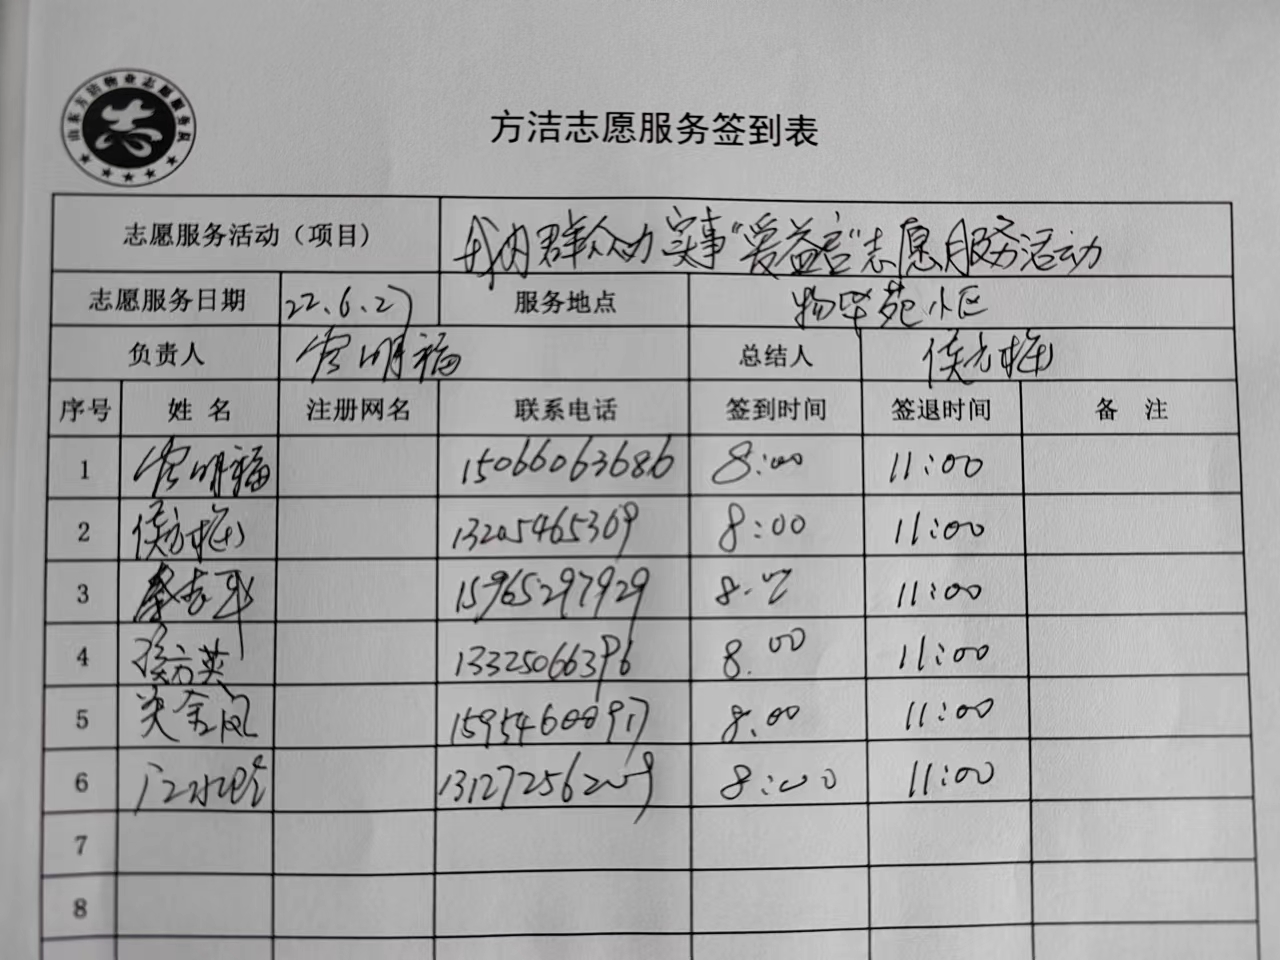 山东方洁物业志愿服务队
志
方洁志愿服务签到表
志愿服务活动（项目） 我为群众办实事“爱益言”志愿服务活动
志愿服务日期 22.6.27 服务地点 物华苑小区
负责人 明福 总结人 侯方梅
序号 姓名 注册网名 联系电话 签到时间 签退时间 备注
1 明福 15066063686 8:00 11:00
2 侯方梅 13205465309 8:00 11:00
3 15965297929 8.00 11:00
4 方英 13325066396 8.00 11:00
5 金凤 15954600917 8:00 11:00
6 13127256209 8:00 11:00
7
8